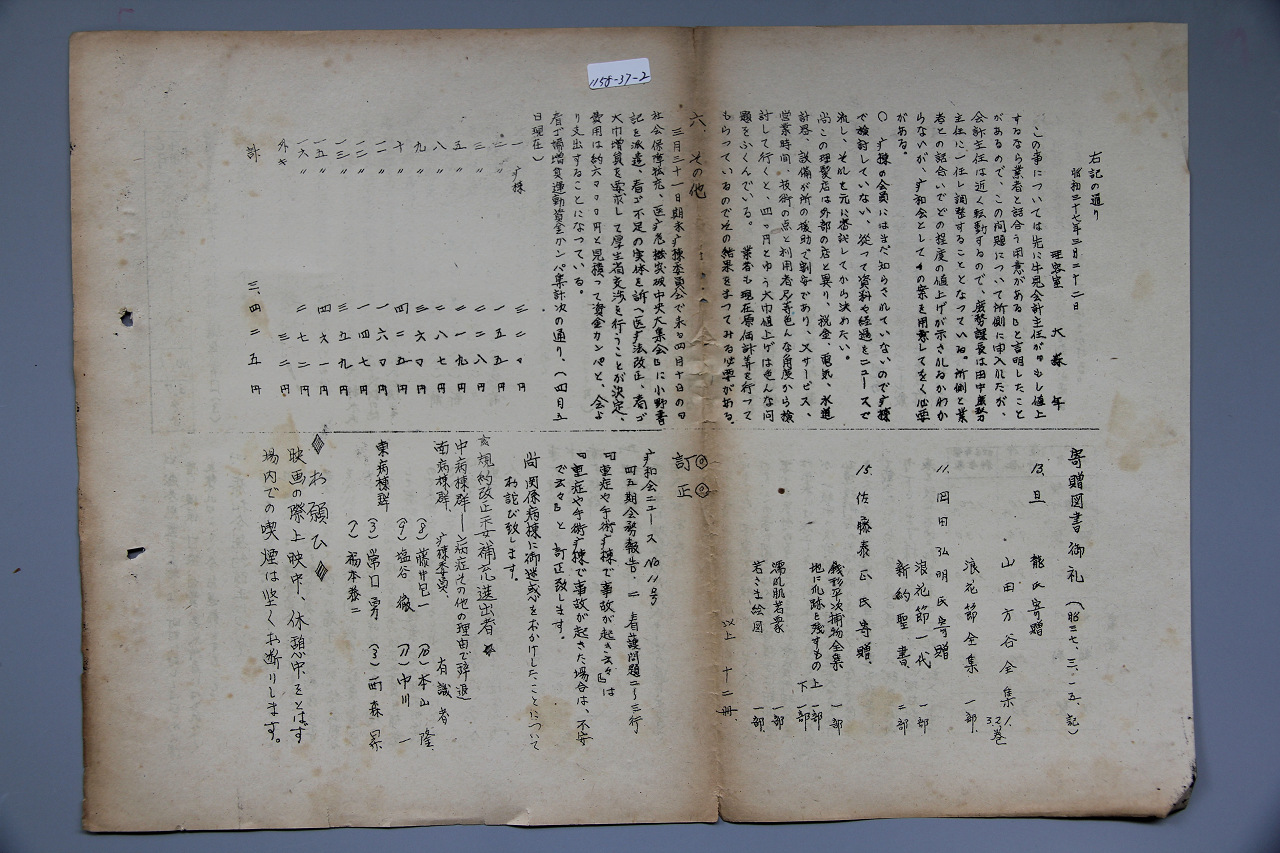 1158-37-2
右記の通り
昭和三十七年三月二十二日
理容室 大森 年
この事については先に牛見会計主任が「もし値上
するなら業者と話合う用意がある」と言明したこと
があるので、この問題について所側に申入れたが、
会計主任は近く転勤するので、庶務課長は田中庶務
主任に一任し調整することとなっている。所側と業
者との話合いでどの程度の値上げが示されるかわか
らないが、疒和会としての案を用意しておく必要
がある。
〇 疒棟の会員にはまだ知らされていないので疒棟
で検討していない、従って資料や経過をニュースで
流し、それを元に審議してから決めたい。
尚この理髪店は外部の店と異り、税金、電気、水道
計器、設備が所の援助で割安であり、又サービス、
営業時間、技術の点と利用者尼等色んな角度から検
討して行くと、四〇円とゆう大巾値上げは色んな問
題をふくんでいる。 業者も現在原価計算を行って
もらっているのでその結果をまってみる必要がある。
六、その他
三月三十一日期末疒棟委員会で来る四月十日の「
社会保障拡充、医疒危機突破中央大集会」に小野書
記を派遣、看ゴ不足の実体を訴へ医疒法改正、看ゴ
大巾増員を要求して厚生省交渉を行うことが決定、
費用は約六〇〇〇円と見積って資金カンパと、会よ
り支出することになつている。
看ゴ婦増員運動資金カンパ集計次の通り、(四月五
日現在)
一疒棟 三二〇円
二〃 一五五円
三〃 二二八円
五〃 二一九円
八〃 二八七円
九〃 三六〇円
十〃 四二五円
一一〃 一六〇円
一二〃 一四七円
一三〃 三五九円
一五〃 四六一円
一六〃 二七二円
外キ 三二円
計 三、四二五円
寄贈図書御礼 (昭三七、三、一五、記)
13、旦 龍氏寄贈
山田方谷全集 1.2.3巻
浪花節全集 一部
11、岡田弘明氏寄贈
浪花節一代 一部
新約聖書 二部
15、佐藤泰正氏寄贈、
銭形平次捕物全集 一部
地に爪跡を残すもの 上 一部
下 一部
濡れ肌若衆 一部
若さま絵図 一部
以上 十二冊
◎◎
訂正
疒和会ニュース No11号
四五期会務報告、二 看護問題二〜三行
「重症や手術疒棟で事故が起き云々」は
「重症や手術疒棟で事故が起きた場合は、不安
で云々」と訂正致します。
尚関係病棟に御迷惑をおかけしたことについて
お詫び致します。
☆規約改正示安補充選出者☆
中病棟群――(病症その他の理由で辞退)
南病棟群、 疒棟委員、 有識者
(8)藤井皀一 (8)本山 隆
(9)塩谷 徹 (7)中川 一
東病棟群 (3)常口 勇 (3)西森 昇
(2)福本恭二
◈お願ひ◈
映画の際上映中、休憩中をとはず
場内での喫煙は堅くお断りします。